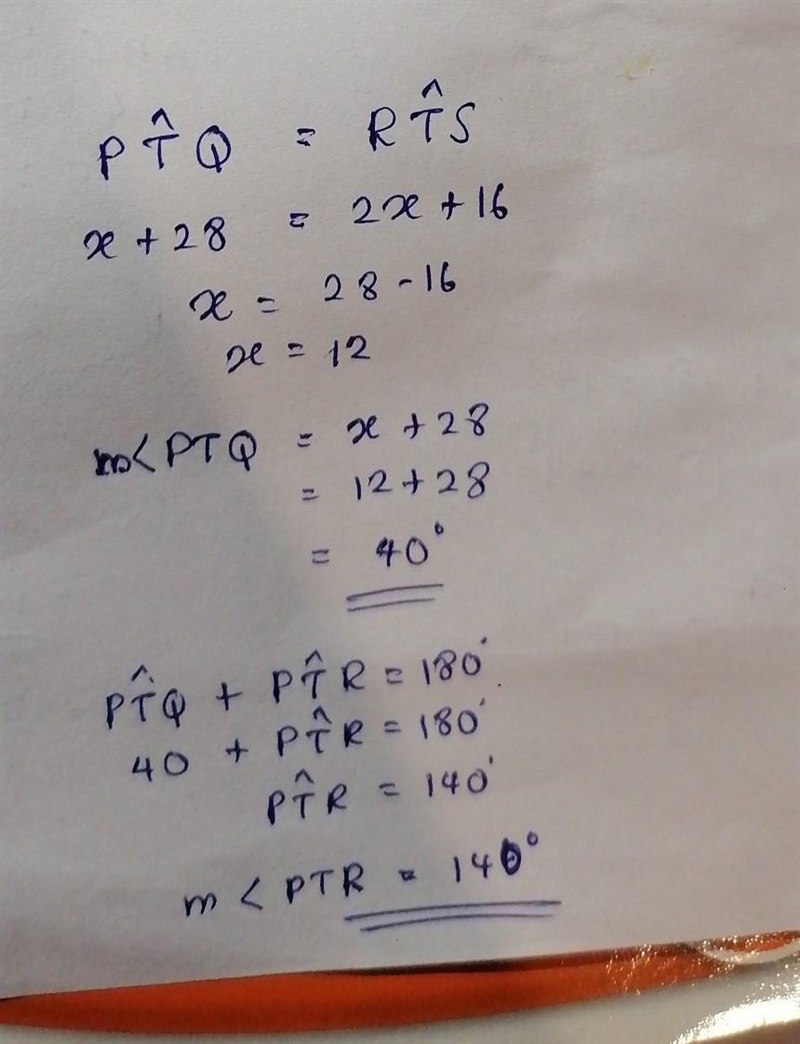 PT̂Q = RT̂S
x + 28 = 2x + 16
x = 28 - 16
x = 12
m< PTQ = x + 28
= 12 + 28
= 40°
PT̂Q + PT̂R = 180°
40 + PT̂R = 180°
PT̂R = 140°
m < PTR = 140°